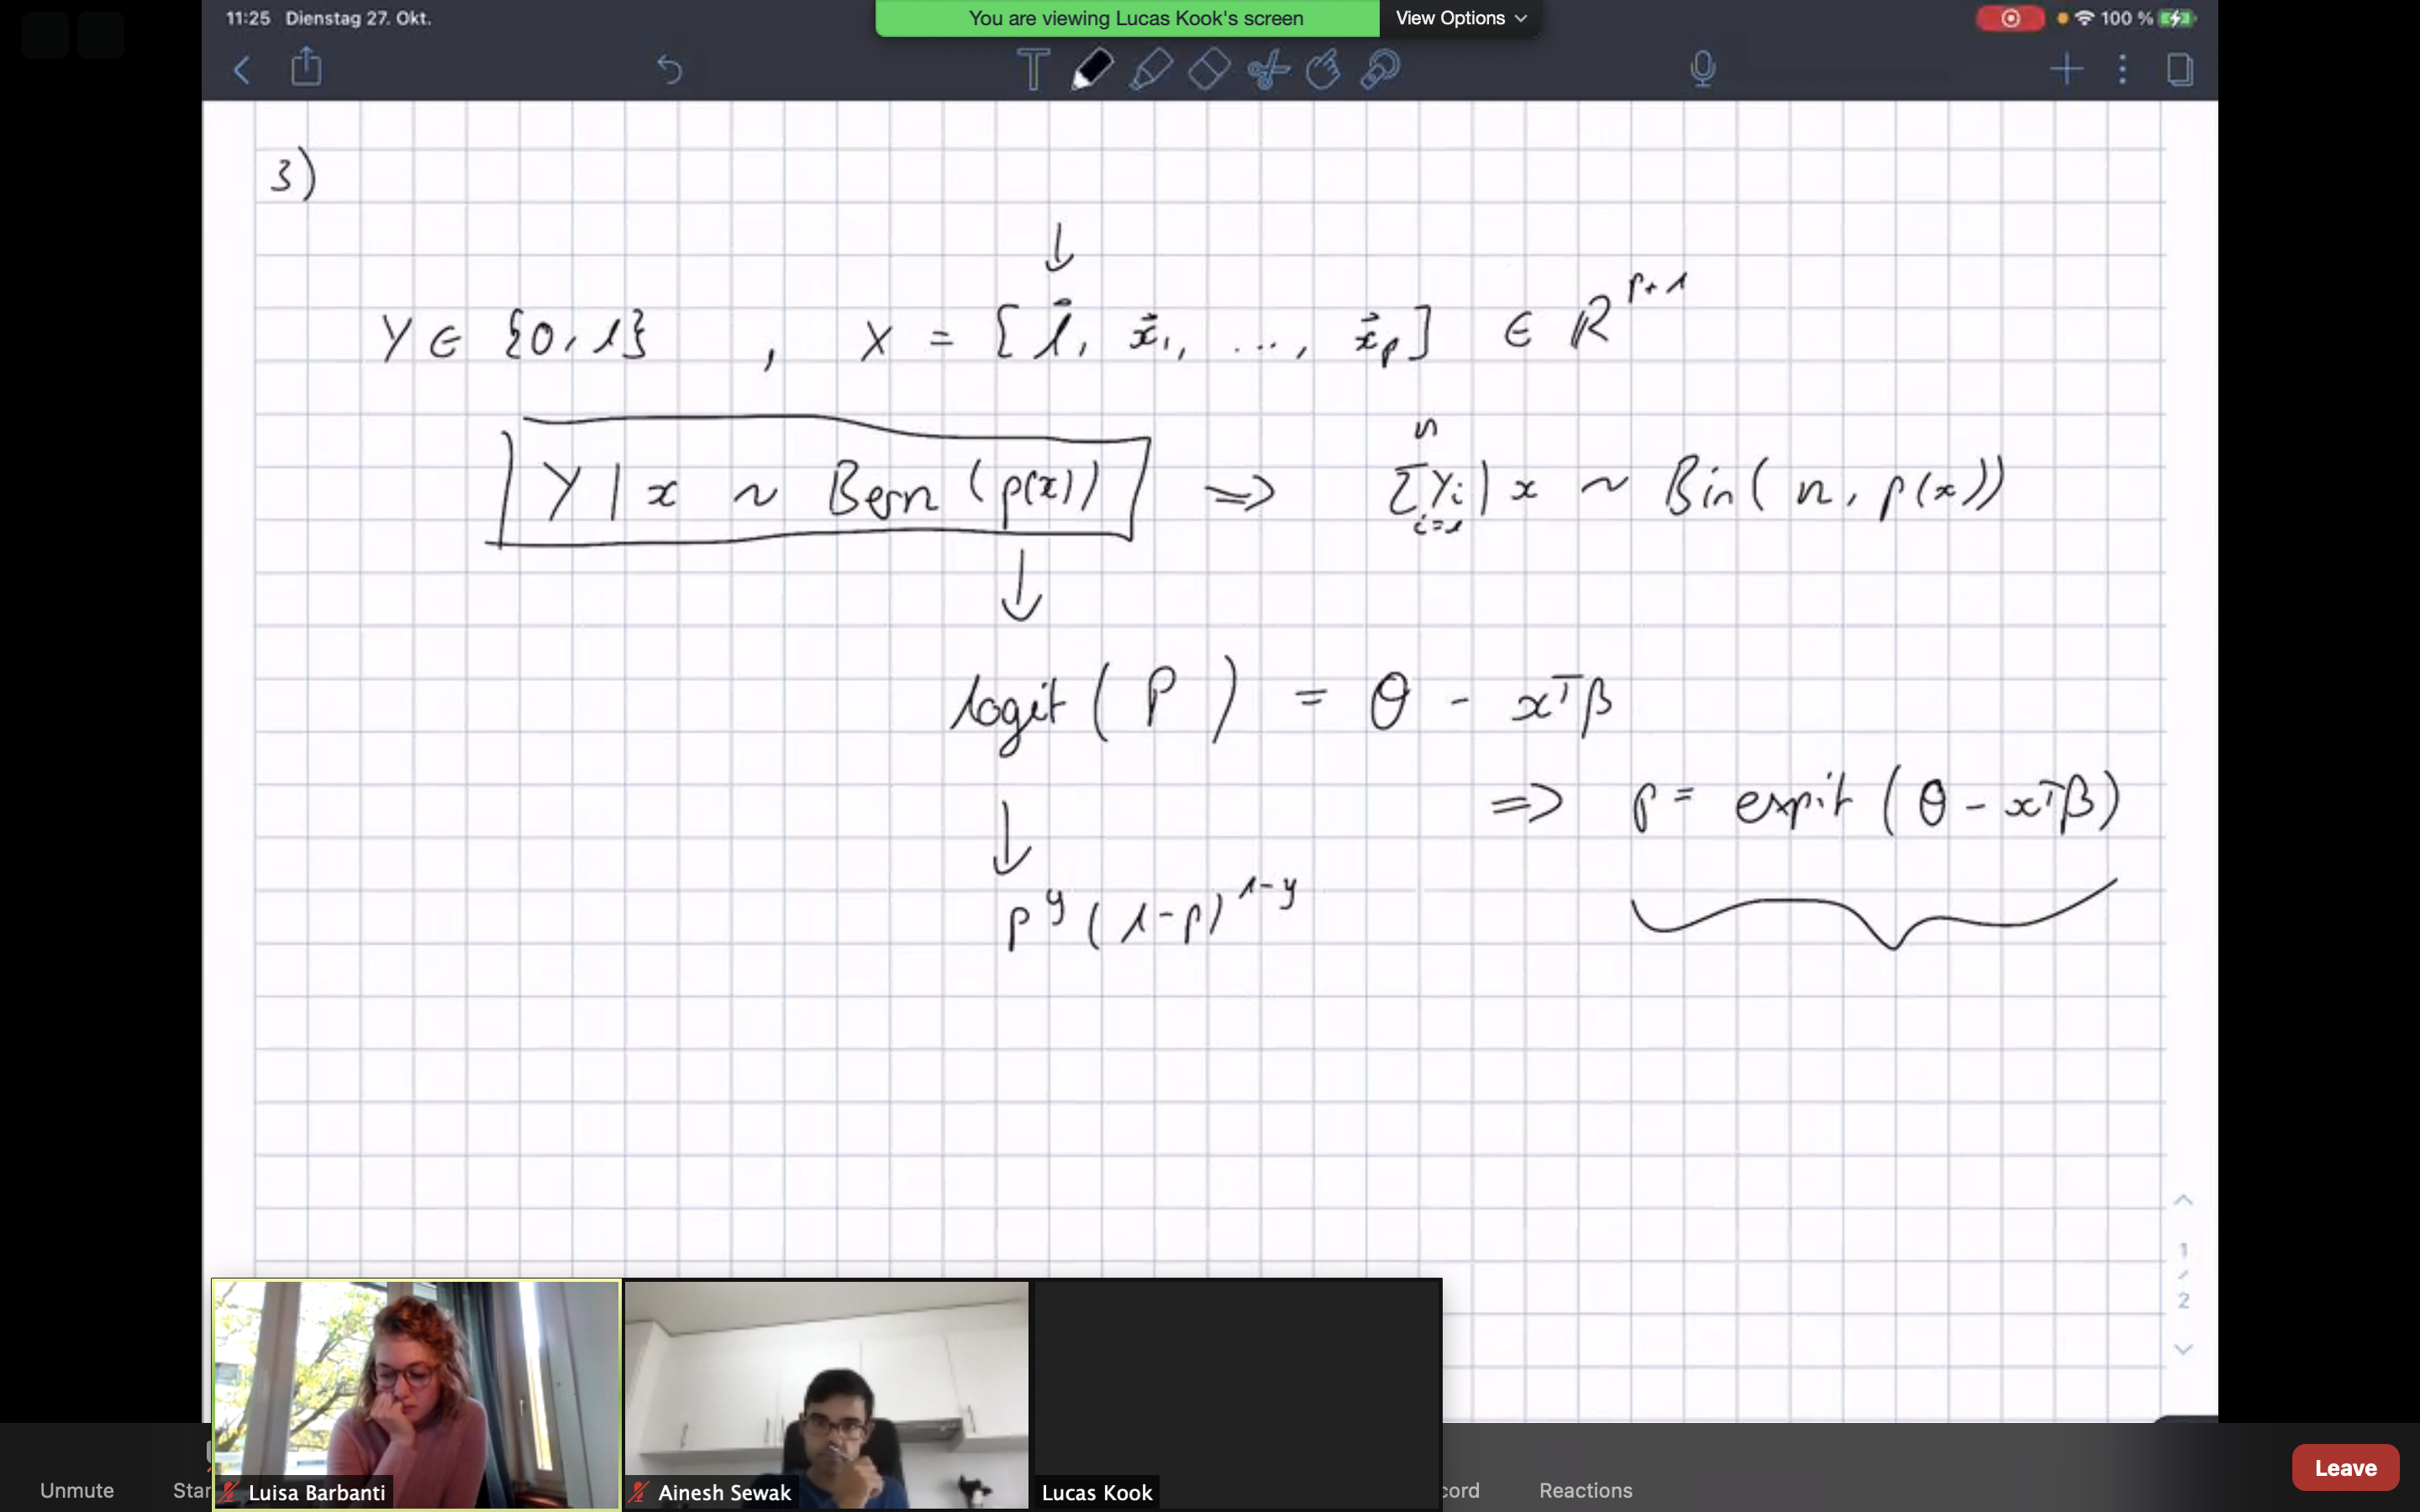 11:25 Dienstag 27. Okt.
You are viewing Lucas Kook's screen
View Options
100 %
T
3)
↓
Y ∈ {0, 1} , X = [1⃗, x⃗₁, ..., x⃗ₚ] ∈ R^{p+1}
Y | x ~ Bern (p(x)) ⇒ Σ_{i=1}^{n} Yᵢ | x ~ Bin( n, p(x))
↓
logit ( p ) = θ - xᵀβ
⇒ p = expit ( θ - xᵀβ)
↓
p^y (1-p)^{1-y}
1
/
2
Luisa Barbanti
Ainesh Sewak
Lucas Kook
Unmute
Star
cord
Reactions
Leave